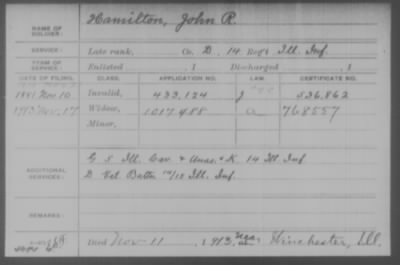 NAME OF SOLDIER: Hamilton, John R.
SERVICE: Late rank, Co. D, 14 Reg't Ill. Inf.
TERM OF SERVICE: Enlisted , 1 Discharged , 1
DATE OF FILING. CLASS. APPLICATION NO. LAW. CERTIFICATE NO.
1881 Nov. 10 Invalid, 433,124 J 536,862
1913 Nov. 17 Widow, 1017,488 a 768557
Minor,
ADDITIONAL SERVICES: G 5 Ill. Cav. & Unas. & K. 14 Ill. Inf
D Vet. Battn 14/15 Ill. Inf.
REMARKS:
Died Nov. 11, 1913, near Winchester, Ill.